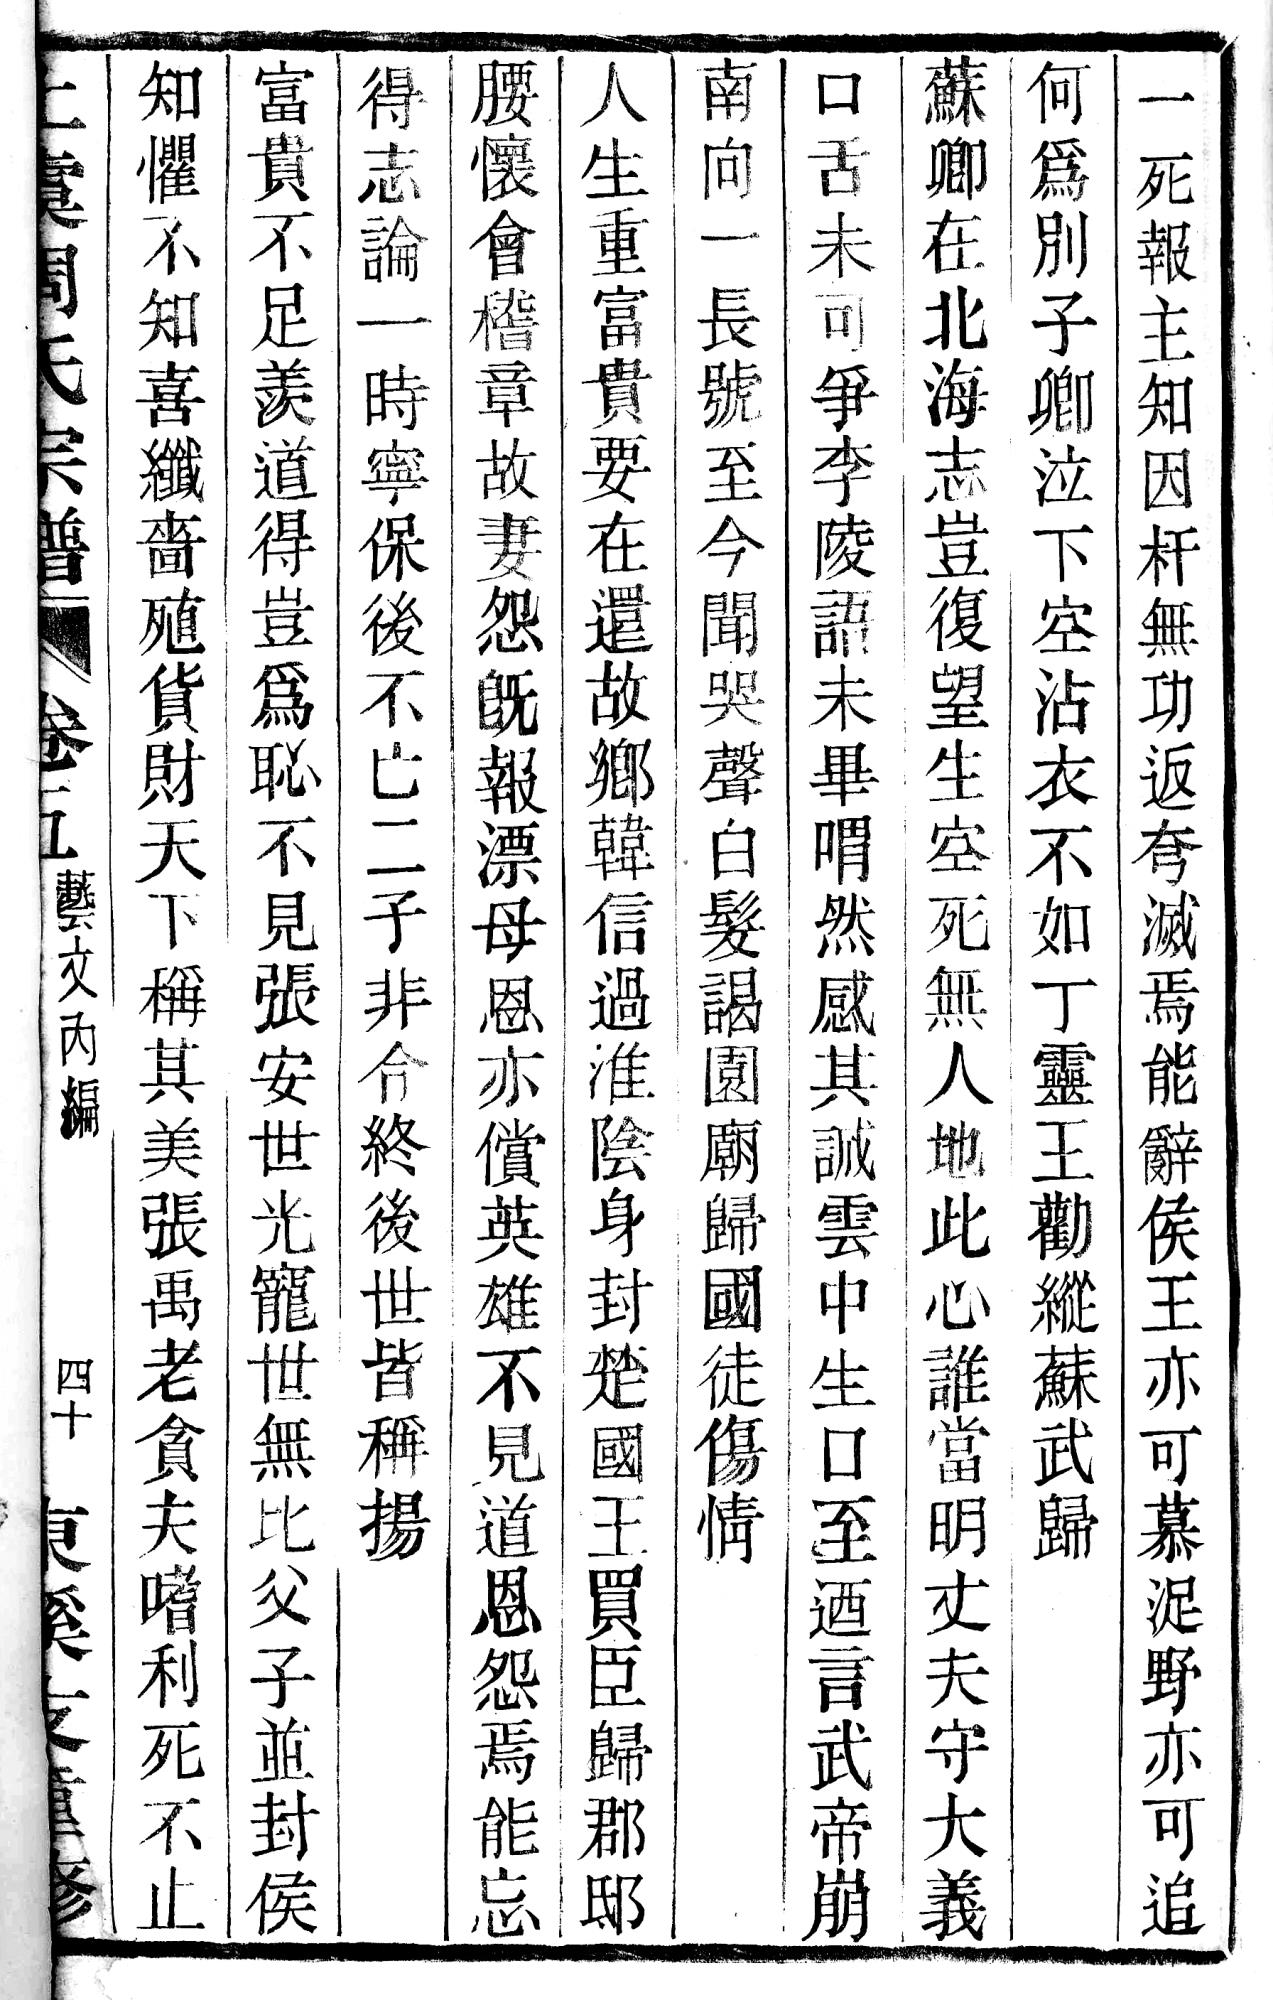 一死報主知因杆無功返夸滅焉能辭侯王亦可慕浞野亦可追
何爲別子卿泣下空沾衣不如丁靈王勸縱蘇武歸
蘇卿在北海志豈復望生空死無人地此心誰當明丈夫守大義
口舌未可爭李陵語未畢喟然感其誠雲中生口至迺言武帝崩
南向一長號至今聞哭聲白髮謁園廟歸國徒傷情
人生重富貴要在還故鄉韓信過淮陰身封楚國王買臣歸郡邸
腰懷會稽章故妻怨旣報漂母恩亦償英雄不見道恩怨焉能忘
得志論一時寧保後不亡二子非令終後世皆稱揚
富貴不足羨道得豈爲恥不見張安世光寵世無比父子並封侯
知懼不知喜纖嗇殖貨財天下稱其美張禹老貪夫嗜利死不止
上虞周氏宗譜 卷五 藝文內編 四十 東溪支重修